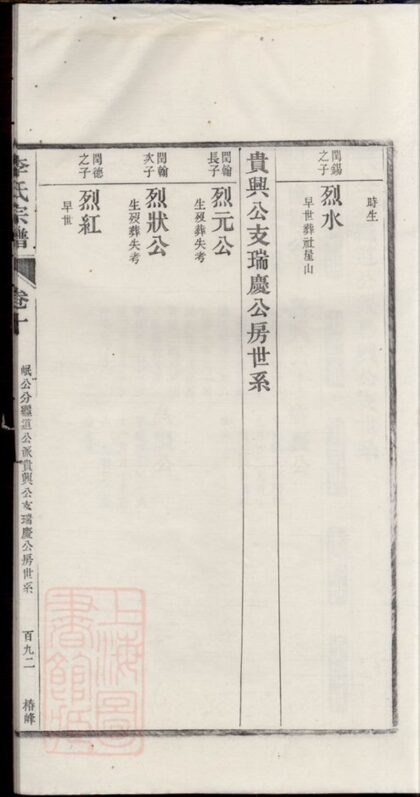 時生
閏錫之子
烈水
早世葬社星山
貴興公支瑞慶公房世系
閏翰長子
烈元公
生歿葬失考
閏翰次子
烈狀公
生歿葬失考
閏德之子
烈紅
早世
李氏宗譜
卷十
岷公分 道公派貴興公支瑞慶公房世系
百九二
椿峰
上海圖書館藏